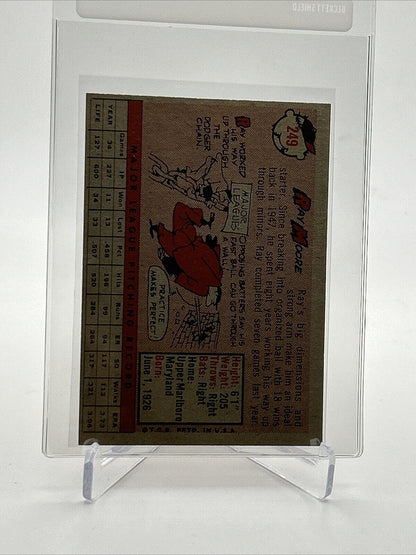 BECKETT SHIELD
249
RAY MOORE
Ray's big dimensions and
strong arm make him an ideal
starter. Since breaking into organized ball with 18 wins
back in 1947, he spent eight years working his way up
through minors. Ray completed seven games last year.
RAY WORKED
HIS WAY
UP THROUGH
THE
DODGER
CHAIN
MAJOR
LEAGUES
OPPOSING BATTERS SAY HIS
FAST BALL CAN GO THROUGH
A WALL.
PRACTICE
MAKES PERFECT!
Height: 6'1"
Weight: 205
Throws: Right
Bats: Right
Home:
Upper Marlboro
Maryland
Born:
June 1, 1926
MAJOR LEAGUE PITCHING RECORD
Games IP Won Lost Pct Hits Runs ER SO Walks ERA
YEAR 34 227 11 13 .458 196 99 94 117 112 3.73
LIFE 127 600 34 33 .507 520 284 264 317
PRTD. IN U.S.A.